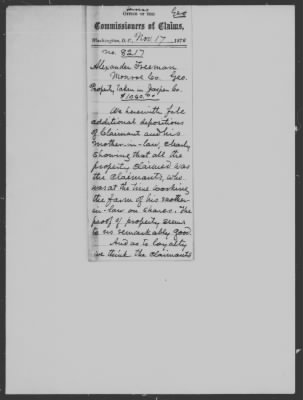 Geo
OFFICE OF THE
Commissioners of Claims,
Washington, D.C., Nov 17 187
No. 8217
Alexander Freeman
Monroe Co. Geo.
Property Taken in Jasper Co.
We herewith file
additional depositions
of Claimant and his
Mother-in-law, clearly
showing that all the
property claimed was
the Claimants, who
was at the time working
the farm of his mother-
in-law on shares. The
proof of property seems
to us remarkably good.
And as to loyalty
we think the claimants